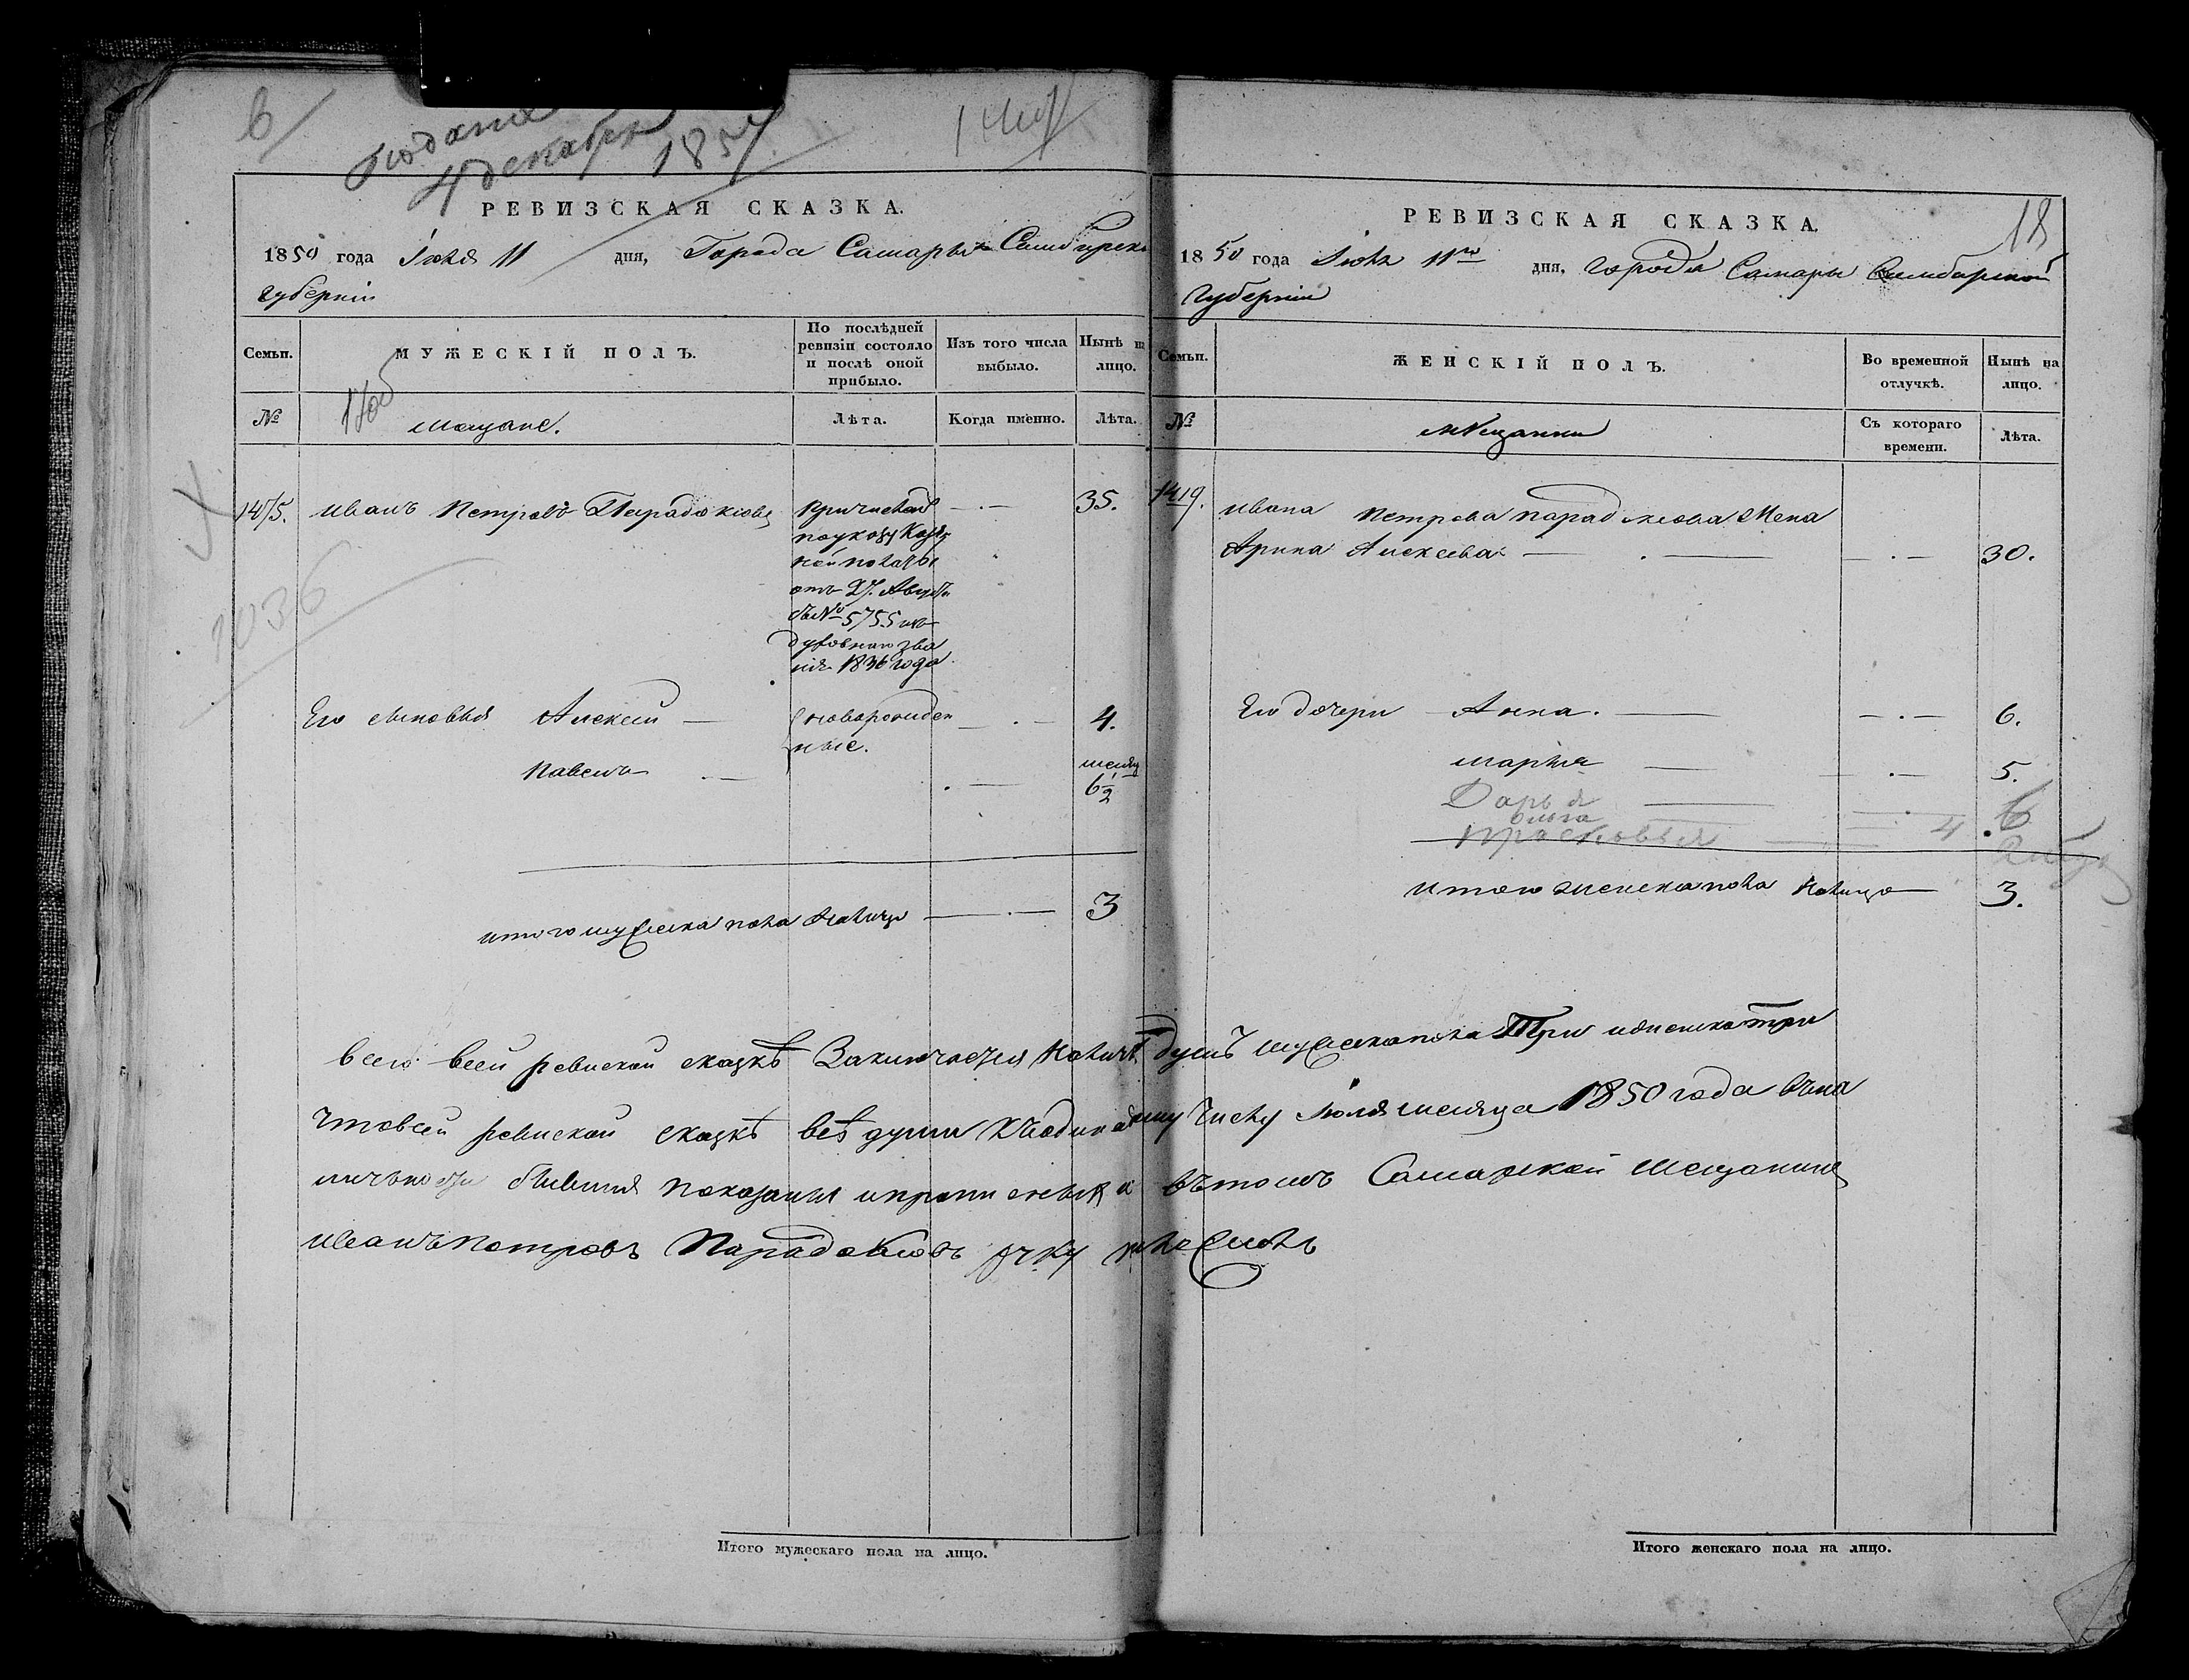 в
подана
4 декабря
1857
РЕВИЗСКАЯ СКАЗКА.
1850 года Июля 11 дня, Города Самары Симбирской
Губернiи
Семьи.
МУЖЕСКIЙ ПОЛЪ.
По послѣдней ревизiи состояло и послѣ оной прибыло.
Изъ того числа выбыло.
Нынѣ на лицо.
№
мещане.
Лѣта.
Когда именно.
Лѣта.
Иванъ Петровъ Парадоксовъ
35.
Причислен
по указу Казен
ной полаты
отъ 27. Август
съ № 5755 изъ
духовнаго зва
нiя 1836 года
2036
Его сыновья Алексей
новорожден
ные.
4.
Павелъ
месяц
6 1/2
итого мужеска пола налицо 3
18
РЕВИЗСКАЯ СКАЗКА.
1850 года Июля 11го дня, города Самары Симбирской
Губернiи
Семьи.
ЖЕНСКIЙ ПОЛЪ.
Во временной отлучкѣ.
Нынѣ на лицо.
№
мѣщанки
Съ котораго времени.
Лѣта.
1419.
Ивана Петрова Парадоксова жена
Арина Алексеева 30.
Его дочери Анна. 6.
Марья 5.
Дарья
Ольга
Прасковья 4
итого женска пола налицо 3.
всего всей ревиской сказкѣ Заключается Налицо душъ мужеска пола Три и женска три
Что всей ревиской сказкѣ всѣ души къ одинадцатому числу Июля месяца 1850 года въ на
личности бывшия показаны и прописных в томъ Самарской мещанинъ
Иванъ Петровъ Парадоксовъ руку приложилъ
Итого мужескаго пола на лицо.
Итого женскаго пола на лицо.